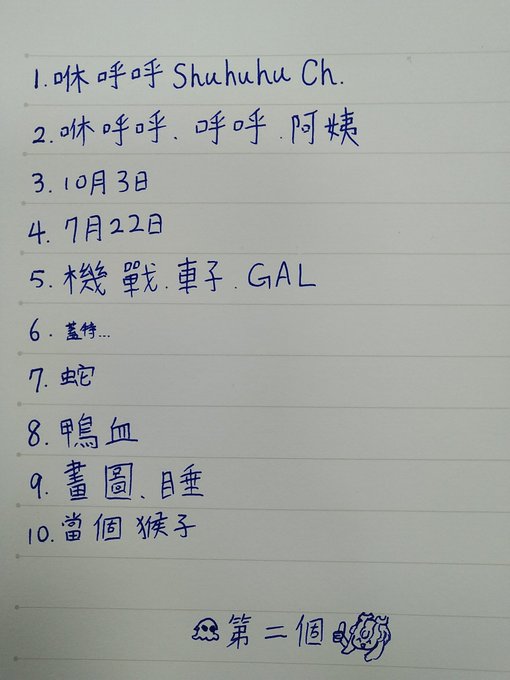 1. 咻呼呼 Shuhuhu Ch.
2. 咻呼呼、呼呼、阿姨
3. 10月3日
4. 7月22日
5. 機戰、車子、GAL
6. 蓋特...
7. 蛇
8. 鴨血
9. 畫圖、睡
10. 當個猴子
第二個